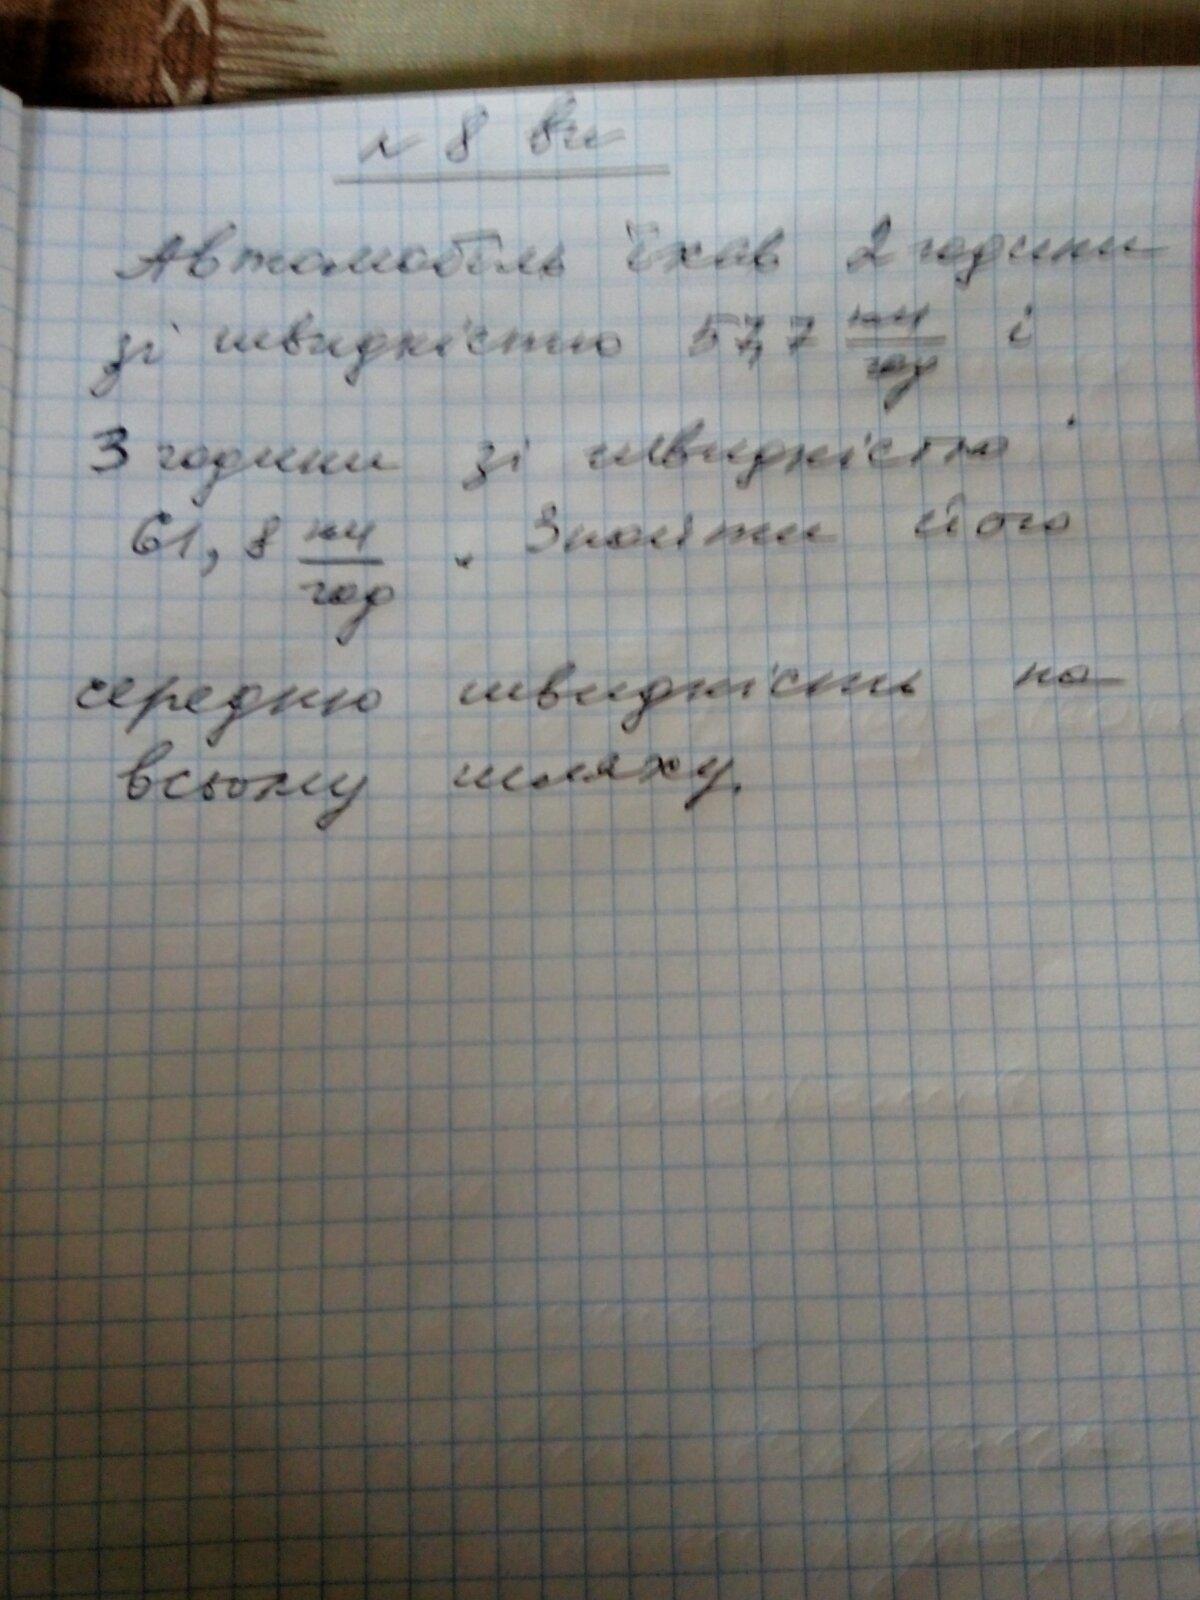 № 8 ви
Автомобіль їхав 2 години
зі швидкістю 57,7 км/год і
3 години зі швидкістю
61,8 км/год. Знайти його
середню швидкість на
всьому шляху.